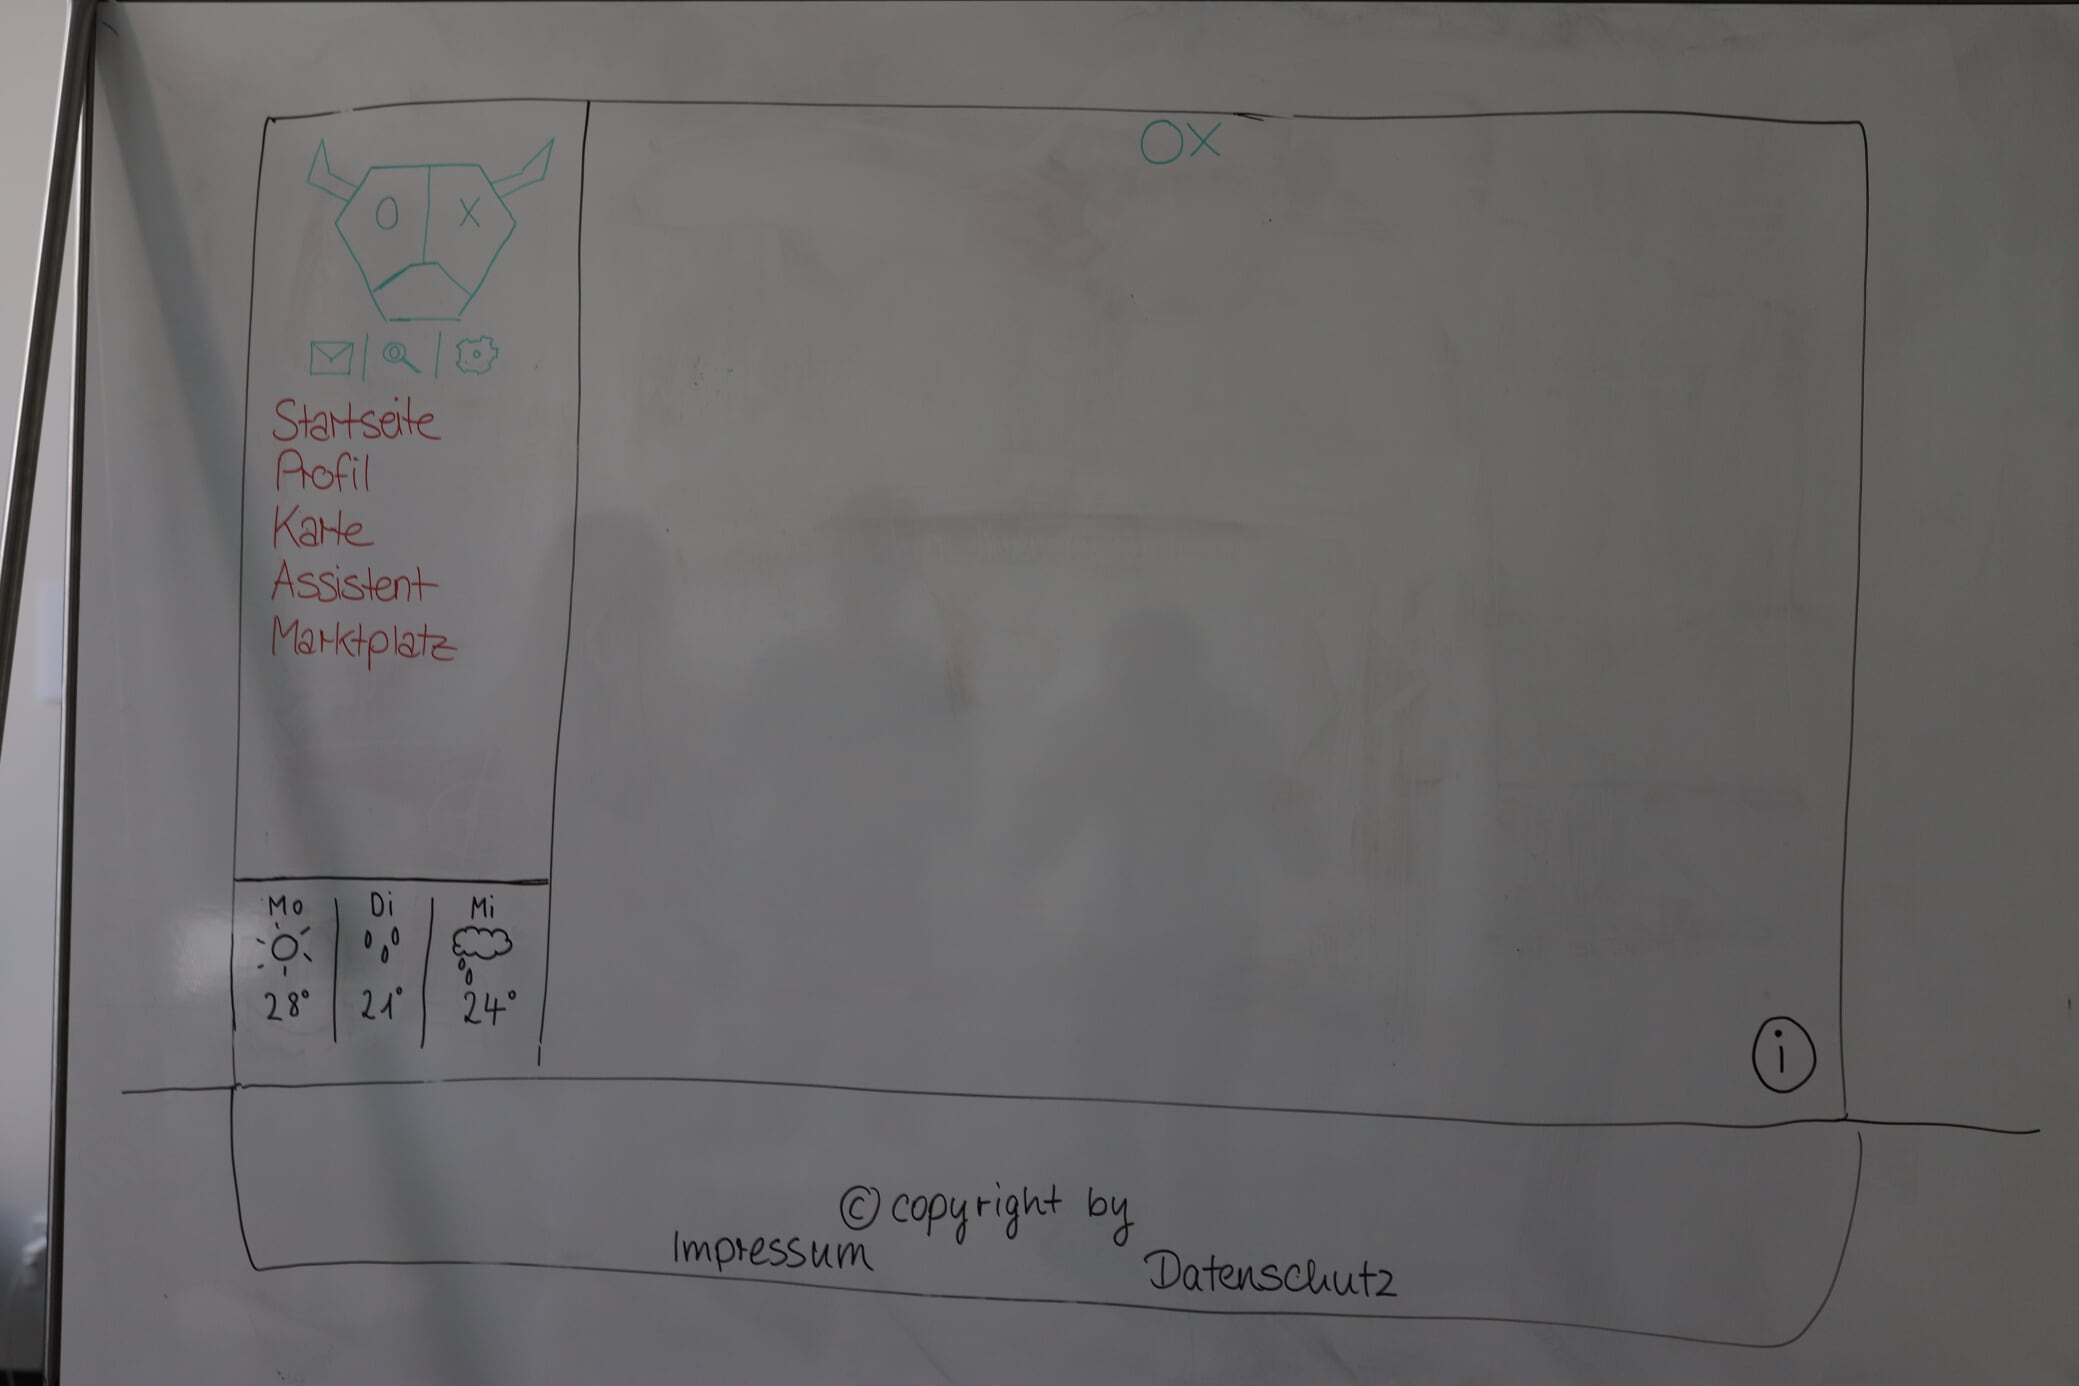 OX
O X
Startseite
Profil
Karte
Assistent
Marktplatz
Mo Di Mi
28° 21° 24°
i
© copyright by
Impressum
Datenschutz